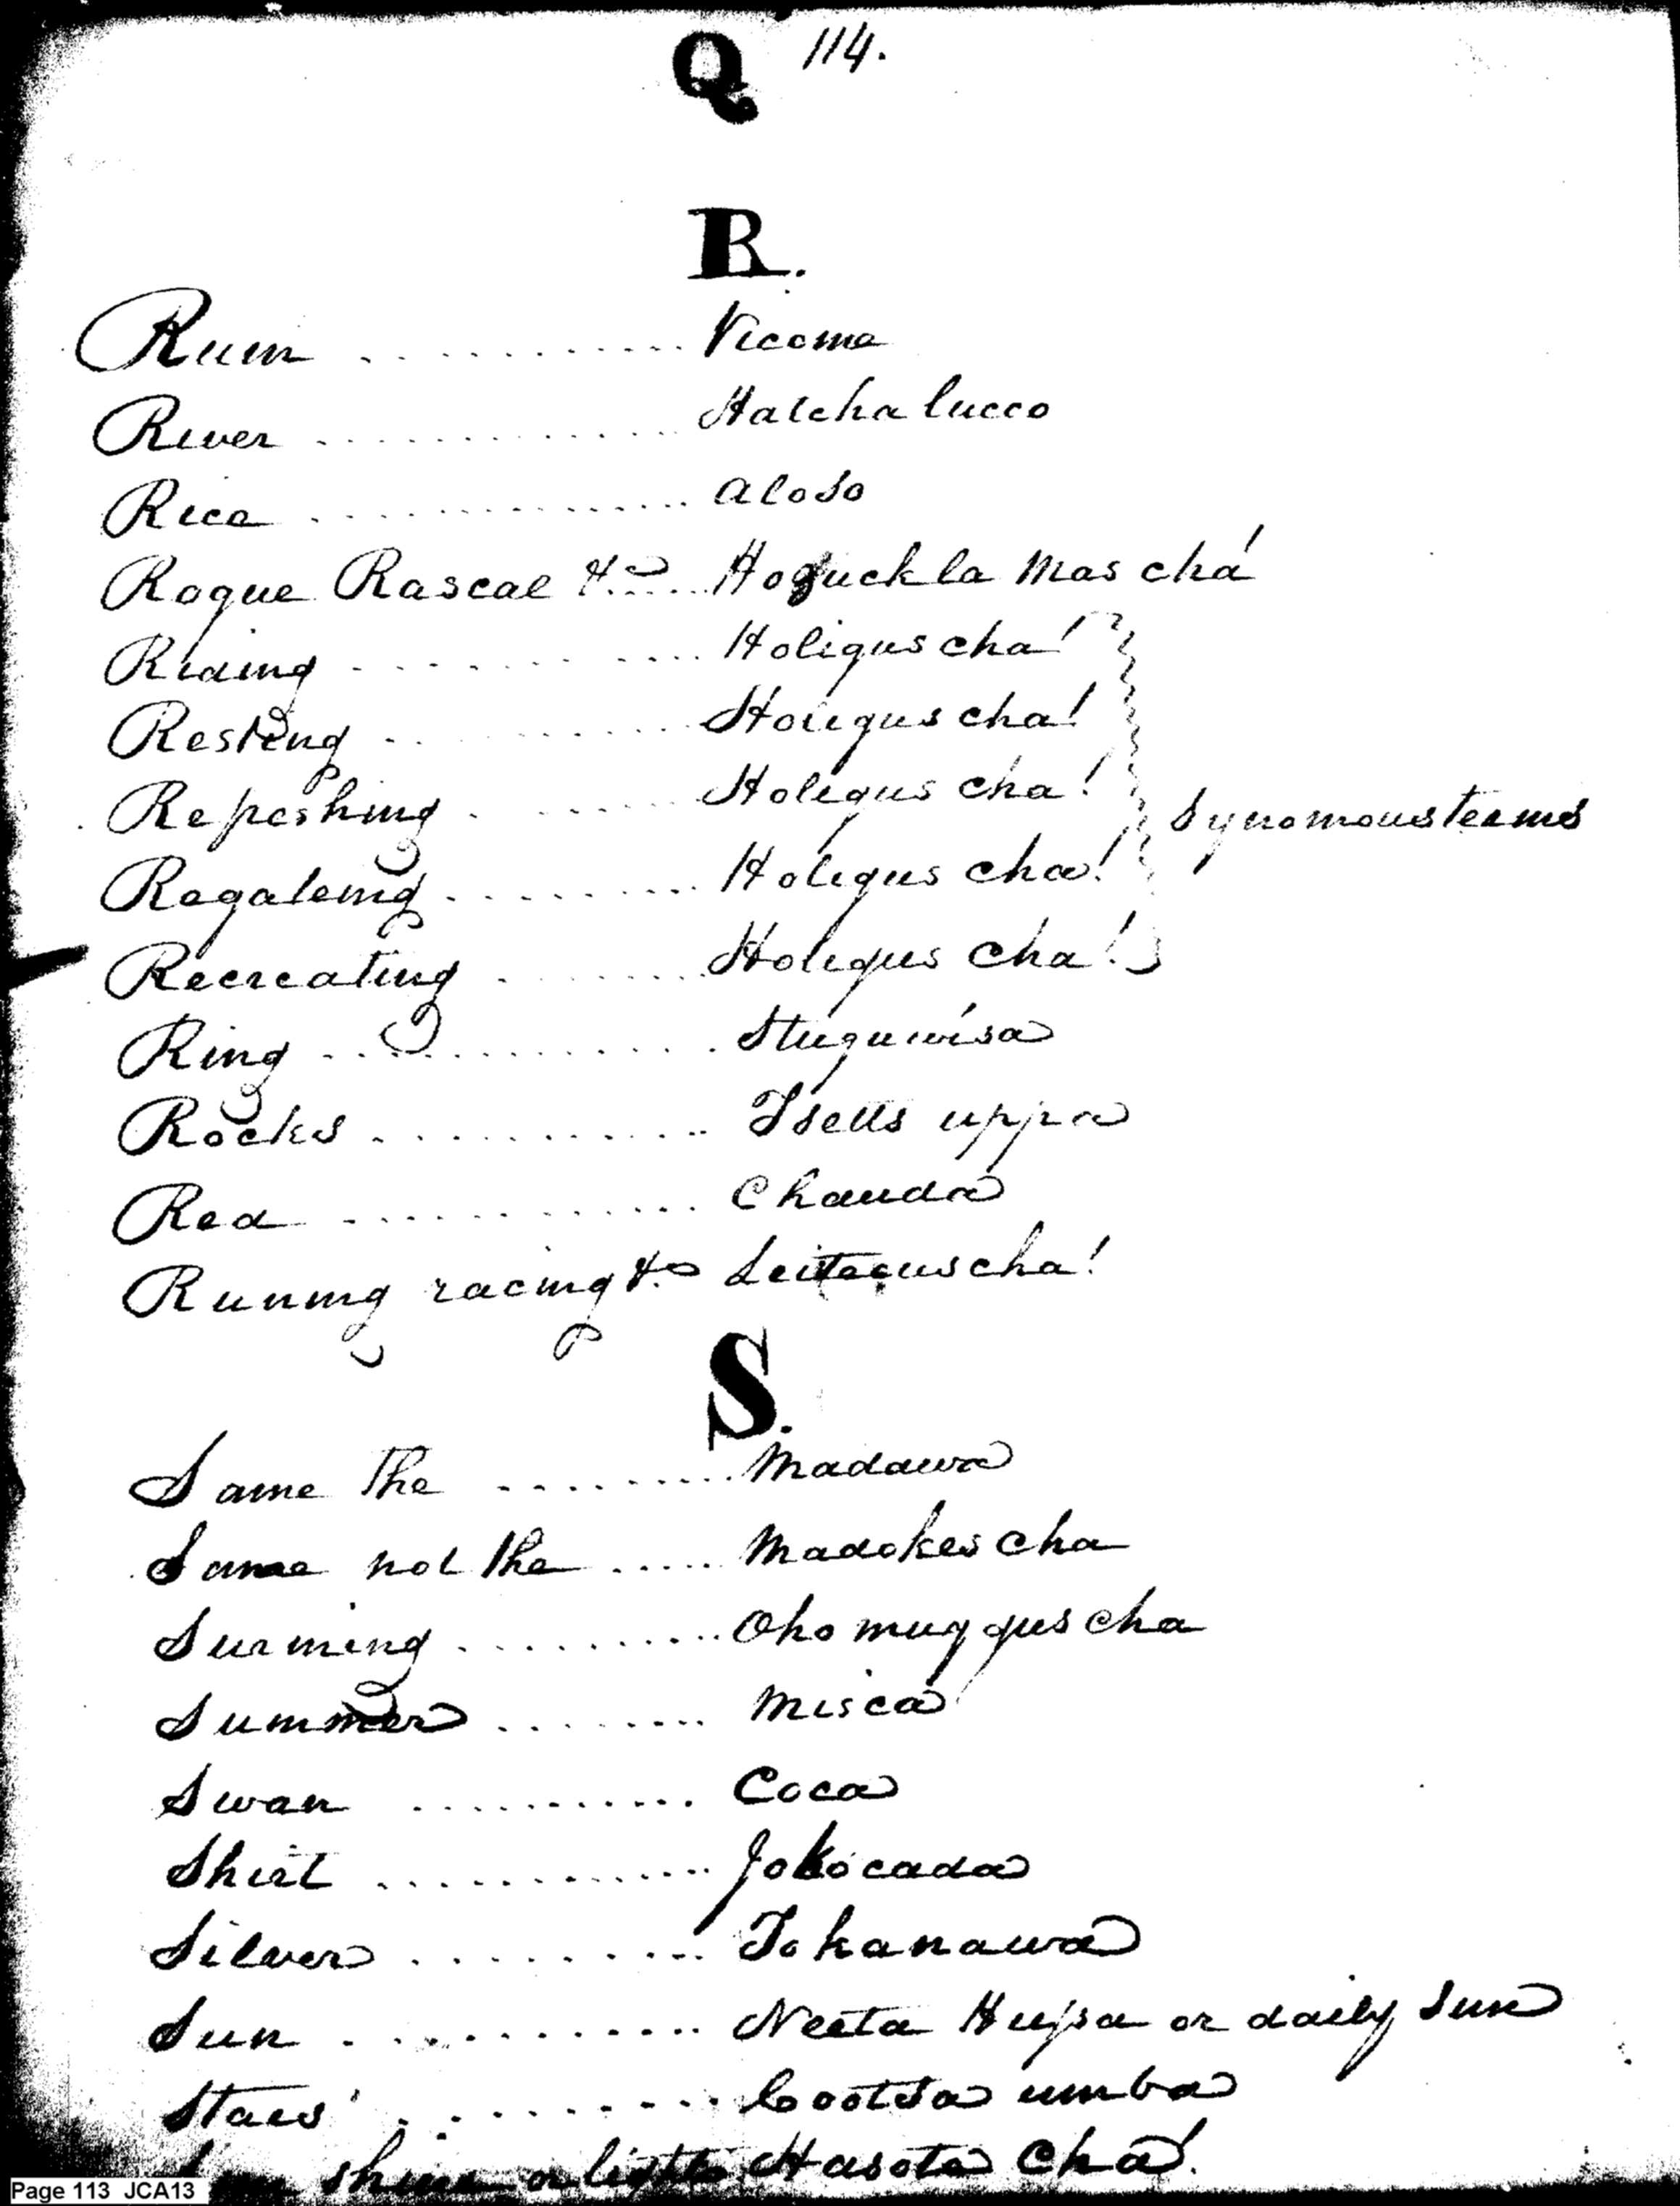 Q 114.
R.
Rum ............ Vicoma
River ............. Hatcha lucco
Rice ............... Aloso
Rogue Rascal &c ..... Hoguckla mas chá
Riding ............. Holigus cha!
Resting ............. Holigus cha!
Refreshing ......... Holigus cha! Synomous terms
Regaleing ......... Holigus cha!
Recreating ........ Holigus cha!
Ring .............. Stuguwisa
Rocks ............ Isetts uppa
Red ............. Chauda
Runing racing &c Leitecus cha!
S.
Same The ......... Madawa
Same not the ..... Madokes cha
Surming .......... Oho mug gus cha
Summer ........ Misca
Swan ........... Coca
Shirt ............ Jokocada
Silver .......... Tokanawa
Sun ............ Neeta Hujsa or daily Sun
Stars ........... Cootsa umba
Sun shine or light Hasota Cha!
Page 113 JCA13